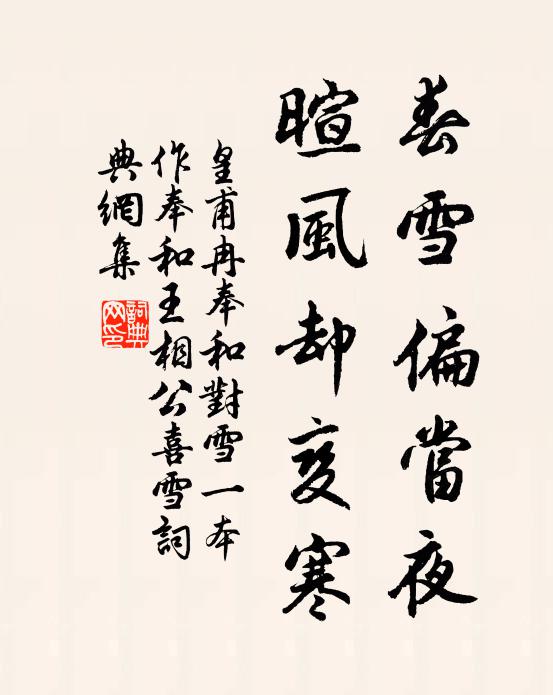 春雪偏當夜
暄風却变寒
皇甫冉奉和對雪一本
作奉和王相公喜雪詞
典網集
詞典
网印